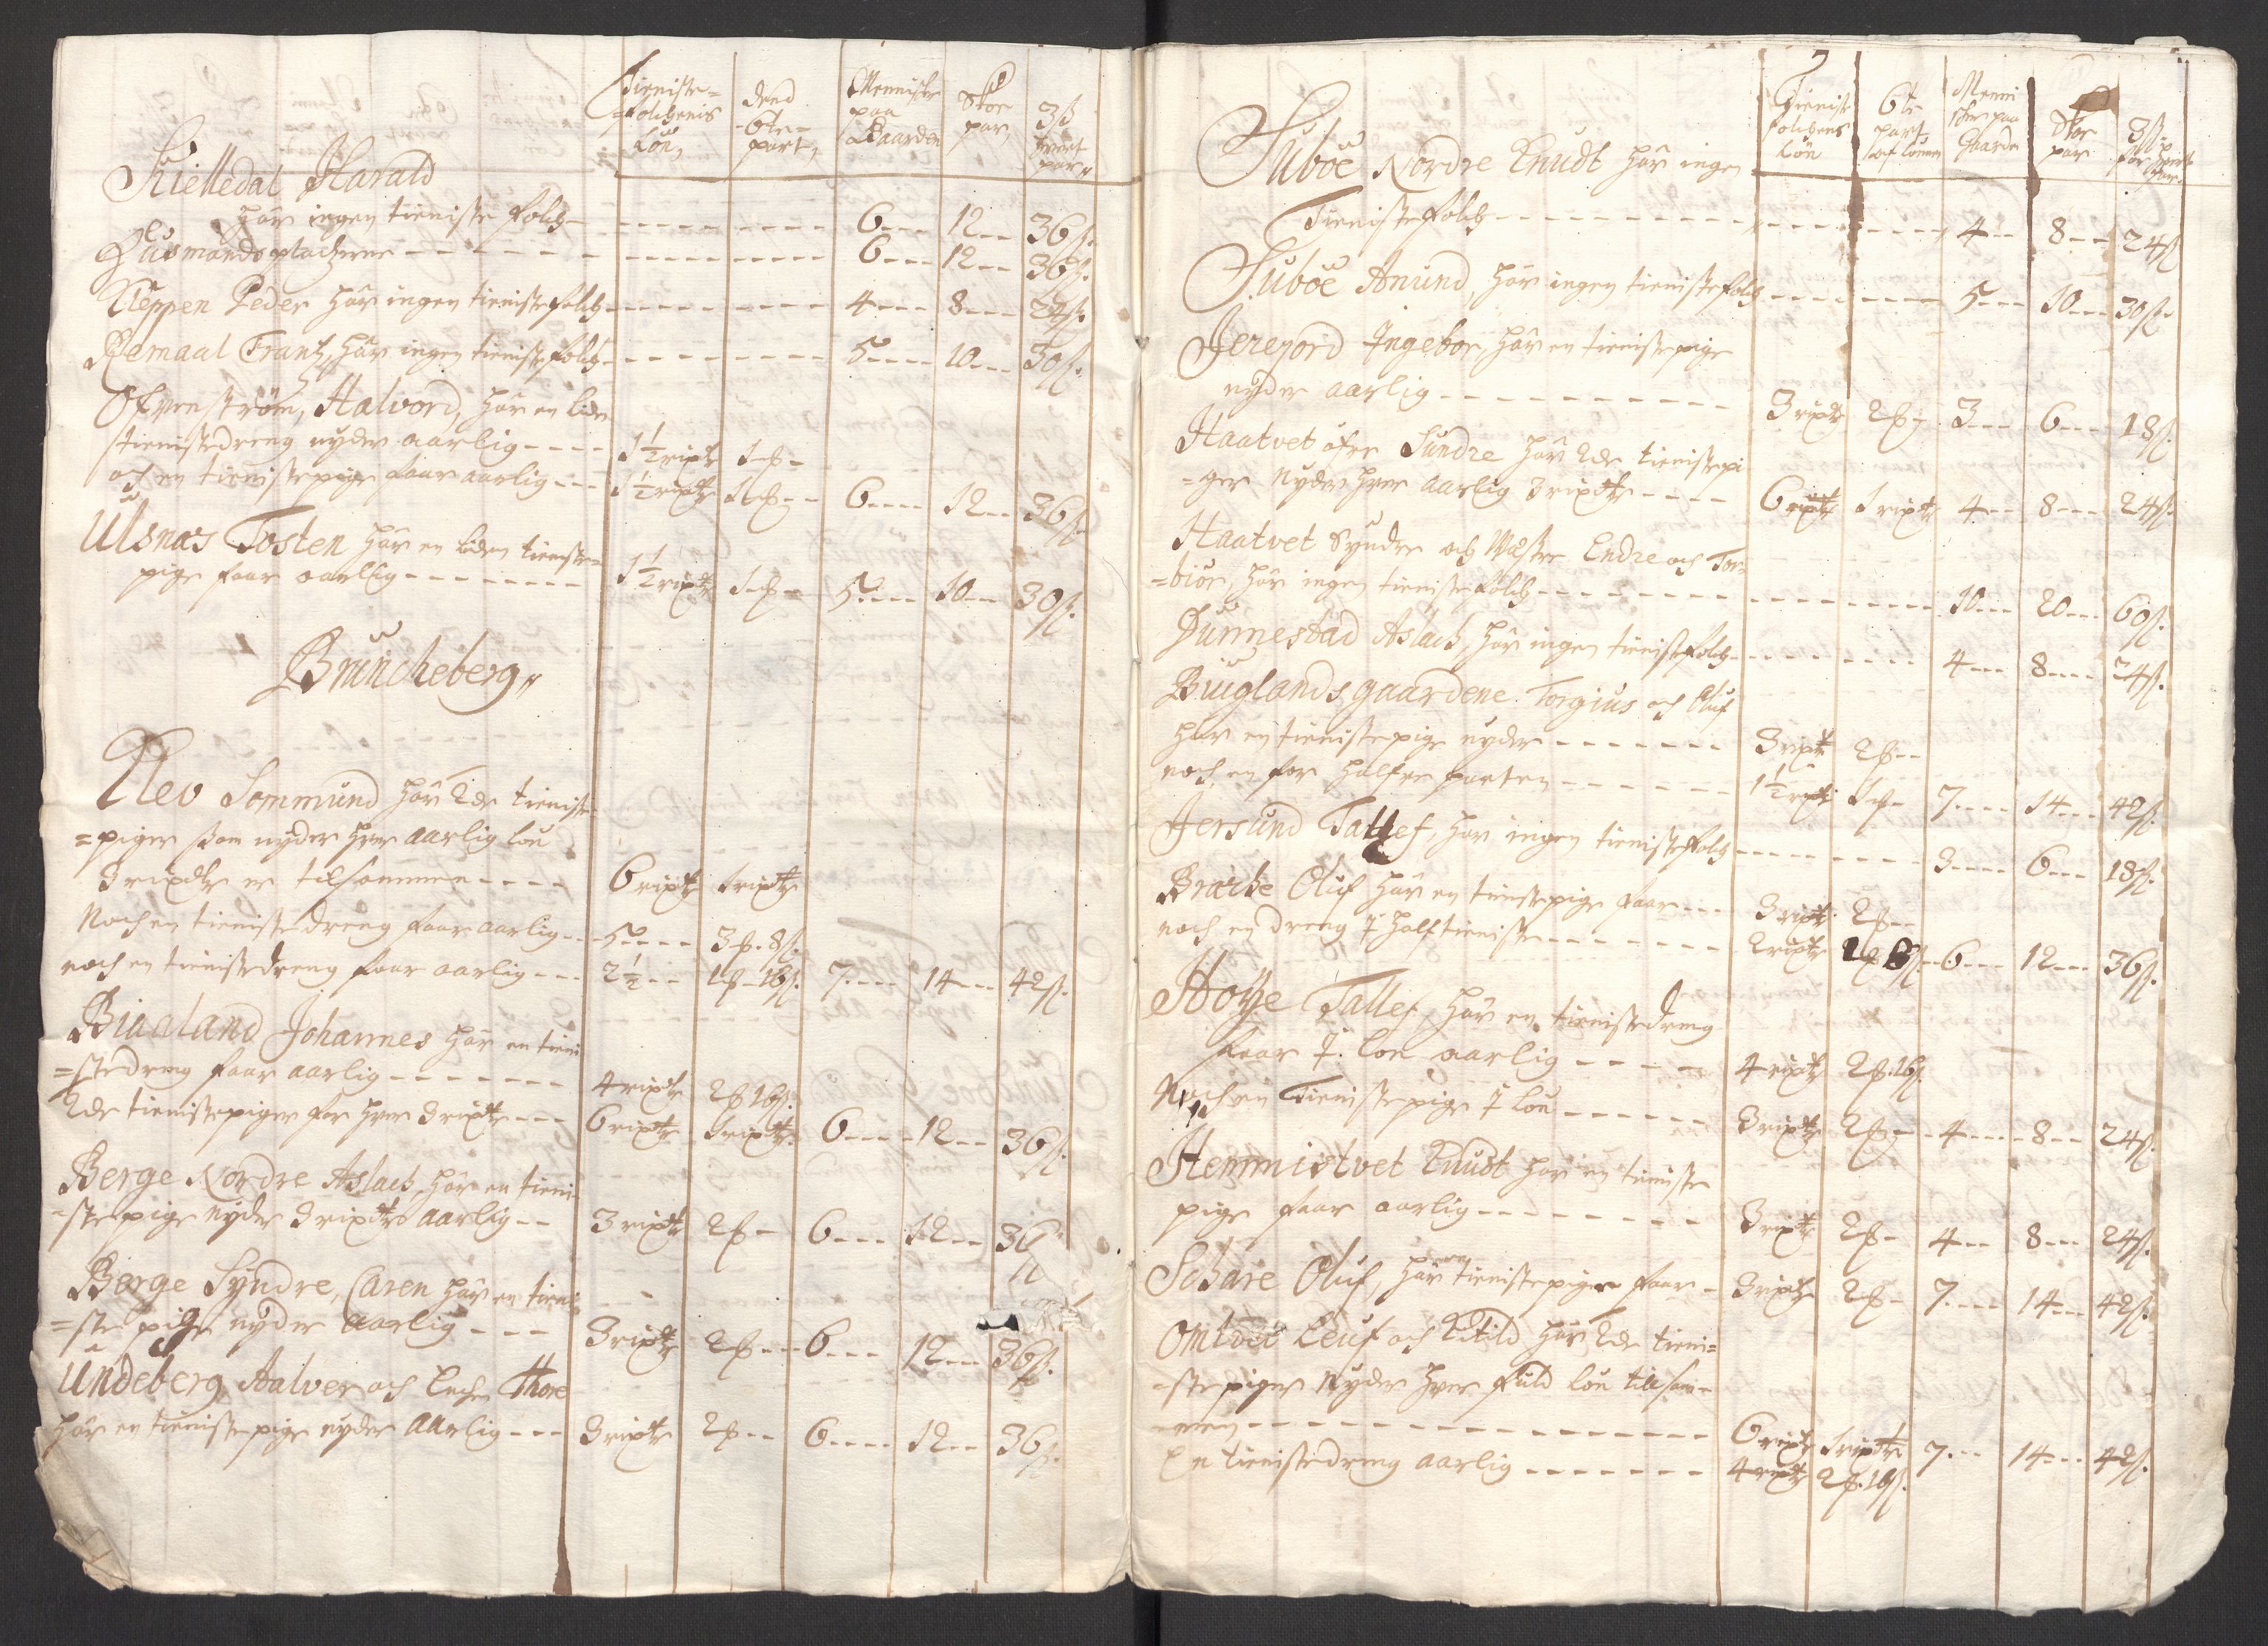 Tieniste= dend Menniske Skoe 3ß
=folchenis 6te= paa par, hvert
Lön, part, Gaarden par,,
Kielledal Harald
har ingen tieniste folch - - - - 6 - - - 12 - - 36ß.
Huusmandsplatzerne - - - - 6 - - - 12 - - 36ß.
Kleppen Peder har ingen tienistefolch - - - - 4 - - - 8 - - - 24ß.
Remaal Frantz, har ingen tienistefolch - - - - 5 - - - 10 - - - 30ß.
Ofvenström, Halvord, har en liden
tienistedreng nyder aarlig - - - - 1½ rixdlr 1 ℔ -
och en tienistepige faar aarlig - - - 1½ rixdlr 1 ℔ - - 6 - - - 12 - - 36ß.
Ulsnas Tosten har en liden tieniste=
pige faar aarlig - - - - 1½ rixdlr 1 ℔ - 5 - - - 10 - - 30ß.
Bruncheberg,,
Klev Sommund har 2de tieniste=
=piger som nyder hver aarlig lön
3 rixdlr er tilsammen - - - - 6 rixdlr 1 rixdlr
Noch en tienistedreng faar aarlig - - 5 - - - 3 ℔. 8ß.
noch en tienistedreng faar aarlig - - - 2½ - - 1 ℔ 16ß. 7 - - - 14 - - - 42ß.
Biaaland Johannes har en tieni
=stedreng faar aarlig - - - - 4 rixdlr 2 ℔ 16ß.
2de tienistepiger for hver 3 rixdlr - - - 6 rixdlr 1 rixdlr 6 - - - 12 - - 36ß.
Berge Nordre Aslach, har en tieni
=stepige nyder 3 rixdlr aarlig - - 3 rixdlr 2 ℔ - 6 - - - 12 - - 36ß
Berge Syndre, Caren har en tieni
=ste pige nyder aarlig - - - 3 rixdlr 2 ℔ - - 6 - - - 12 - - 36ß.
Undeberg Aalver och Enchen Thore
har en tienistepige nyder aarlig - - - 3 rixdlr 2 ℔ - - 6 - - - 12 - - 36ß.
7
Tieniste 6te Menni Skoe 3ß
folchens part sker paa par for hvert
Lön af lönnen Gaarden par.
Suböe Nordre Knudt har ingen
Tienistefolch - - - - 4 - - 8 - - 24ß
Suböe Anund, har ingen tienistefolch - - - - 5 - - 10 - - 30ß.
Jerejord Ingebor, har en tienistepige
nyder aarlig - - - - 3 rixdlr 2 ℔ - 3 - - - 6 - - - 18ß.
Haatvet öfre Sundre har 2de tienistepi
=ger nyder hver aarlig 3 rixdlr - - - - 6 rixdlr 1 rixdlr 4 - - 8 - - - 24ß.
Haatvet Syndre och Wæstre Endre och Tor=
=biör, har ingen tienistefolch - - - - 10 - - - 20 - - - 60ß.
Dunnestad Aslach, har ingen tienistefolch - - - - 4 - - - 8 - - - 24ß.
Biuglandsgaardene Torgius och Oluf
har en tienistepige nyder - - - - 3 rixdlr 2 ℔ - -
noch en for halfve parten - - - - 1½ rixdlr 1 ℔ - 7 - - - 14 - - - 42ß.
Jersund Tallef, har ingen tienistefolch - - - - 3 - - - 6 - - - 18ß.
Brache Oluf har en tienistepige faar - - - 3 rixdlr 2 ℔ - -
noch en dreng i half tieniste - - - - 2 rixdlr 1 ℔ 8ß - 6 - - - 12 - - - 36ß.
Höÿe Tallef, har en tienistedreng
faar i lön aarlig - - - - 4 rixdlr 2 ℔. 16ß.
Noch en Tienistepige i lön - - - - 3 rixdlr 2 ℔ - 4 - - - 8 - - 24ß.
Hemmistvet Knudt har en tieniste
pige faar aarlig - - - - 3 rixdlr 2 ℔ - 4 - - 8 - - - 24ß.
Schare Oluf, har en tienistepige faar - 3 rixdlr 2 ℔ - 7 - - - 14 - - 42ß.
Omtvet Leuf och Kitild har 2de tieni=
=stepiger nyder hver fuld lön tilsam=
=men - - - - 6 rixdlr 1 rixdlr
En tienistedreng aarlig - - - - 4 rixdlr 2 ℔. 16ß. 7 - - - 14 - - - 42ß.